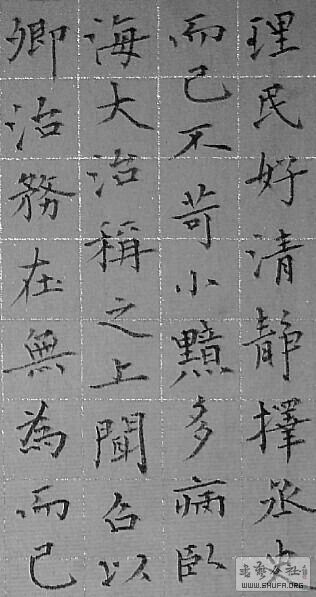 理民好清靜擇丞史
而已不苛小黯多病臥
海大治稱之上聞召以
卿治務在無為而已
书艺公社
WWW.SHUFA.ORG